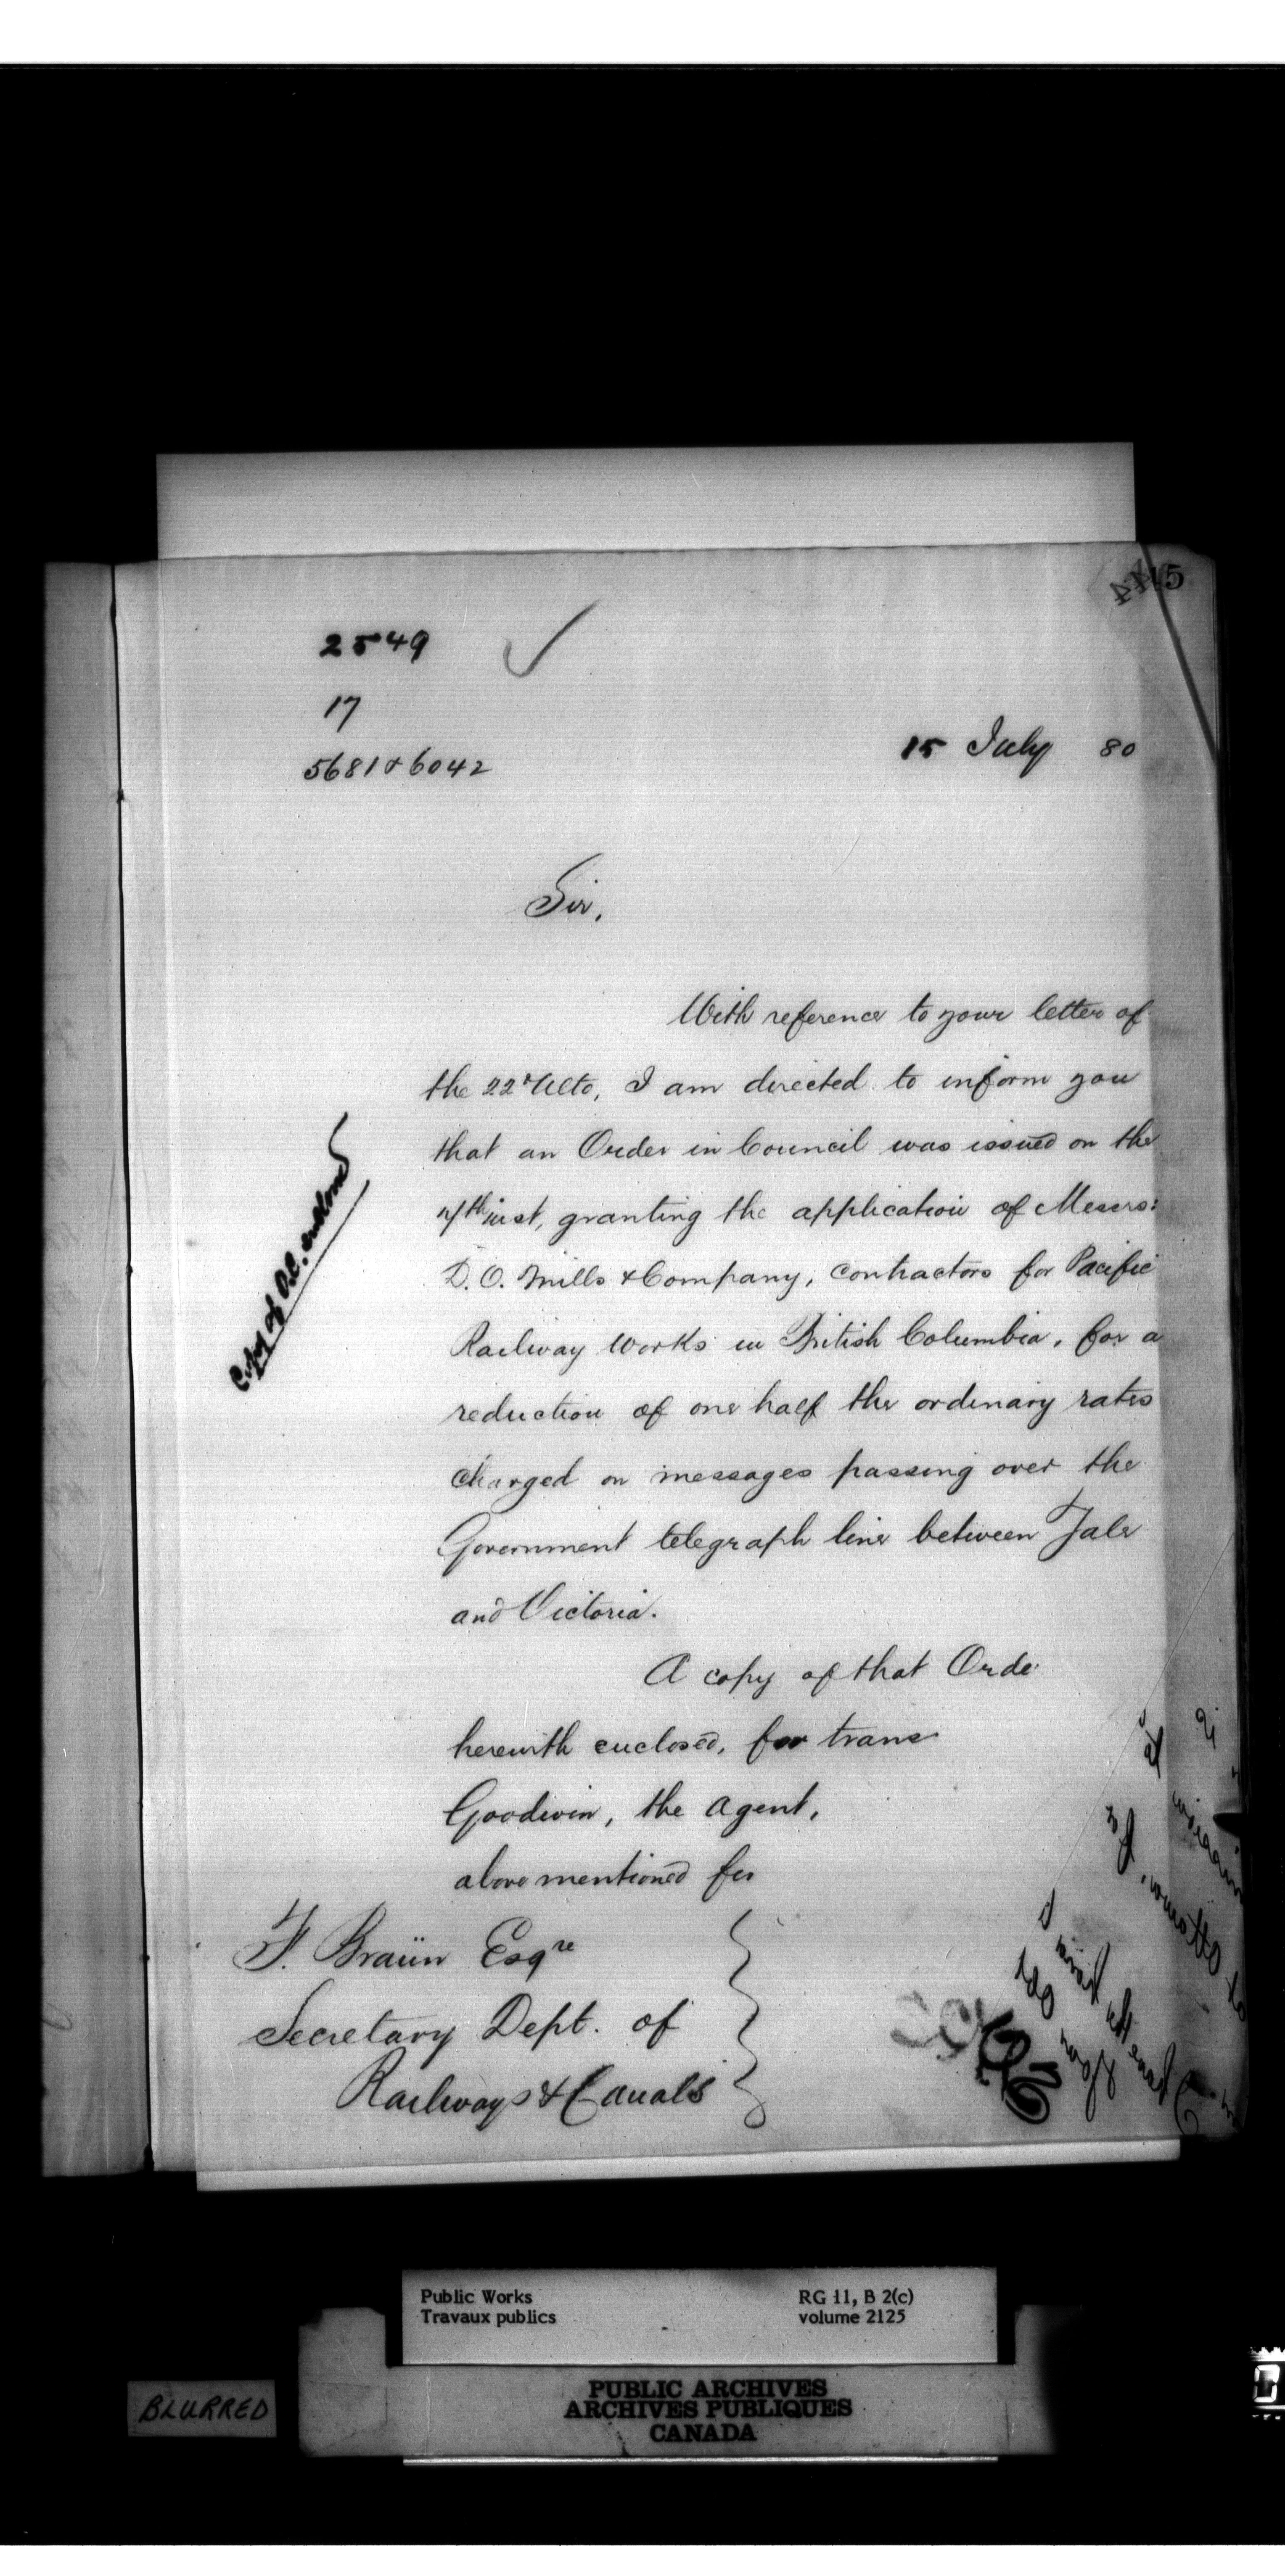 15
2549
17
5681 & 6042
15 July 80
Sir,
With reference to your letter of
the 22d Ulto, I am directed to inform you
that an Order in Council was issued on the
inst, granting the application of Messrs:
D. O. Mills & Company, contractors for Pacific
Railway Works in British Columbia, for a
reduction of one half the ordinary rates
charged on messages passing over the
Government telegraph line between Yale
and Victoria.
A copy of that Orde
herewith enclosed, for trans
Goodwin, the Agent,
above mentioned
Copy of O.C. enclosed
F. Braün Esqre
Secretary Dept. of
Railways & Canals
Public Works
Travaux publics
RG 11, B 2(c)
volume 2125
BLURRED
PUBLIC ARCHIVES
ARCHIVES PUBLIQUES
CANADA